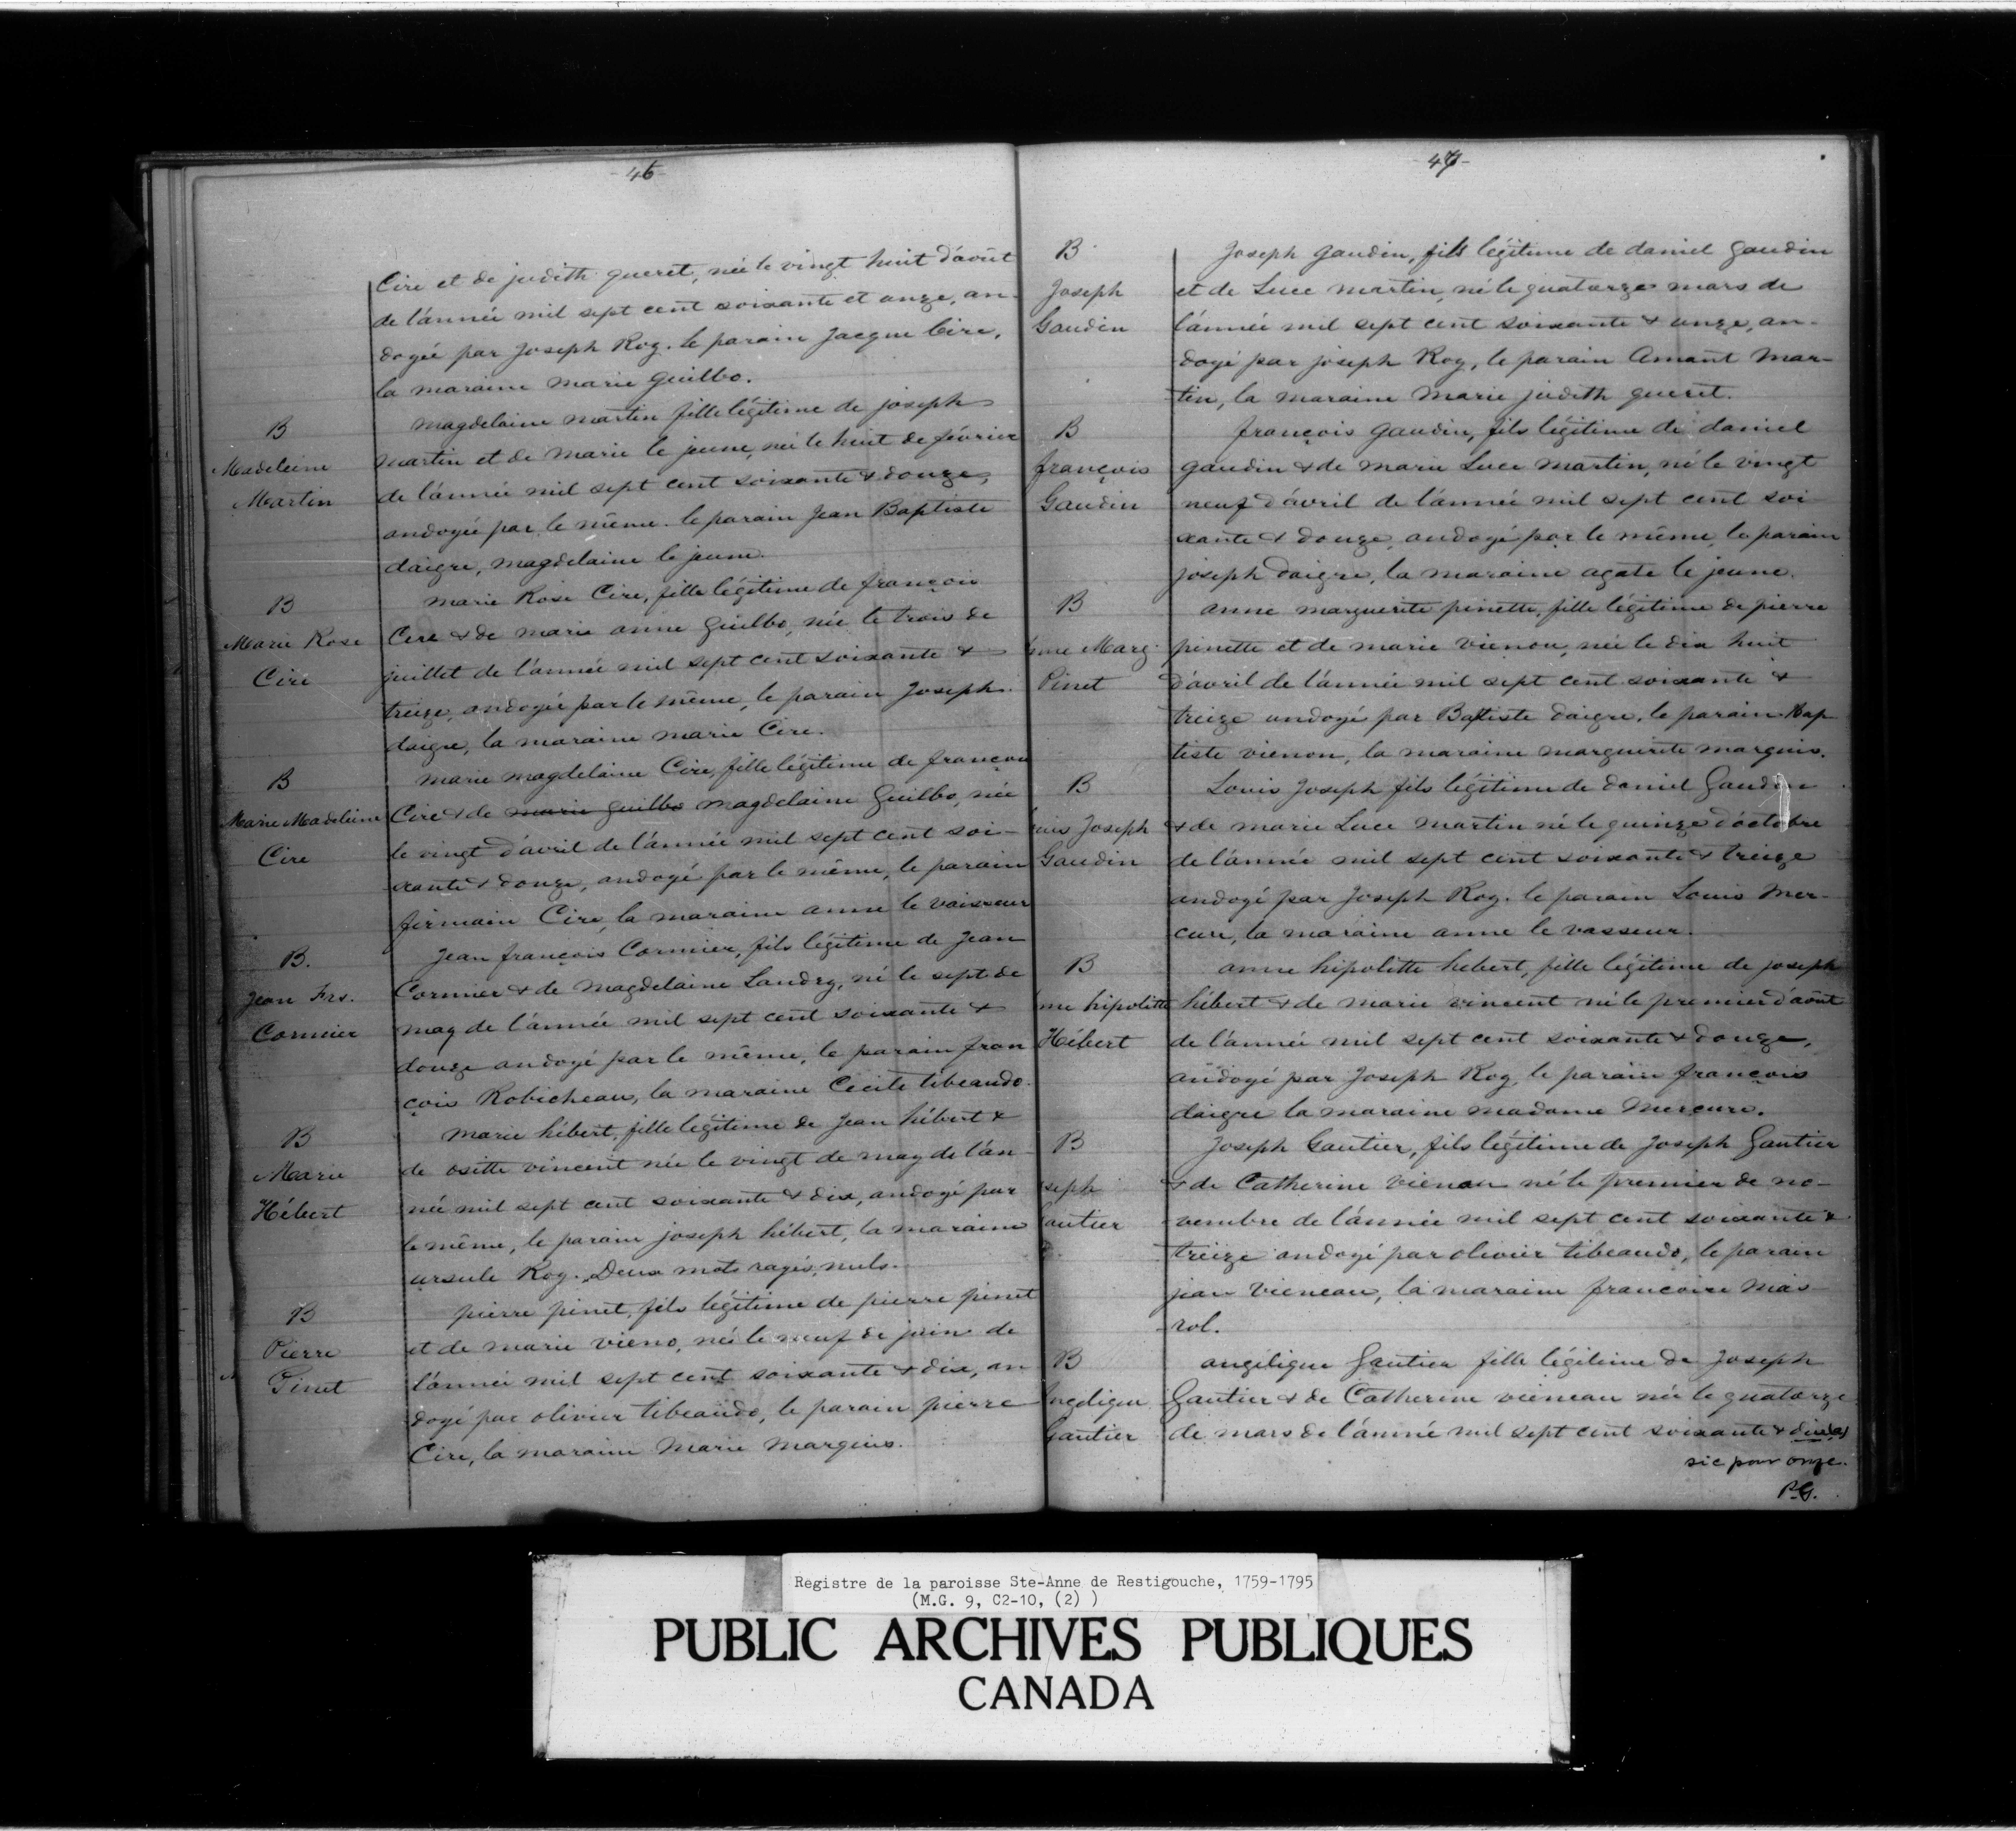 - 46 -
Cire et de judith queret, née le vingt huit d'août
de l'année mil sept cent soixante et onze, an-
doyée par Joseph Roy. le parain Jacque Cire,
la maraine marie guilbo.
B
Madeleine
Martin
magdelaine martin fille légitime de joseph
martin et de marie le jeune, née le huit de février
de l'année mil sept cent soixante & douze,
andoyée par le même. le parain Jean Baptiste
daigre, magdelaine le jeune.
B
Marie Rose
Cire
marie Rose Cire, fille légitime de françois
Cire & de marie anne guilbo, née le trois de
juillet de l'année mil sept cent soixante &
treize, andoyée par le même, le parain Joseph
daigre, la maraine marie Cire.
B
Marie Madeleine
Cire
marie magdelaine Cire, fille légitime de françois
Cire & de marie guilbo magdelaine Guilbo, née
le vingt d'avril de l'année mil sept cent soi-
xante & douze, andoyé par le même, le parain
firmain Cire, la maraine anne le vaisseur
B.
Jean Frs.
Cormier
Jean françois Cormier, fils légitime de Jean
Cormier & de Magdelaine Landry, né le sept de
may de l'année mil sept cent soixante &
douze andoyé par le même, le parain fran
çois Robicheau, la maraine Cecile tibeaudo.
B
Marie
Hébert
Marie hébert, fille légitime de Jean hébert &
de ositte vincent née le vingt de may de l'an
née mil sept cent soixante & dix, andoyé par
le même, le parain joseph hébert, la maraine
ursule Roy. Deux mots rayés, nuls.
B
Pierre
Pinet
pierre pinet, fils légitime de pierre pinet
et de marie vieno, né le neuf de juin de
l'année mil sept cent soixante & dix, an
doyé par olivier tibeaudo, le parain pierre
Cire, la maraine Marie Marquis.
- 47 -
B
Joseph
Gaudin
Joseph Gaudin, fils légitime de daniel Gaudin
et de Luce martin, né le quatorze mars de
l'année mil sept cent soixante & onze, an-
doyé par joseph Roy, le parain Amant Mar-
tin, la maraine Marie judith queret.
B
françois
Gaudin
françois Gaudin, fils légitime de daniel
gaudin & de marie Luce Martin, né le vingt
neuf d'avril de l'année mil sept cent soi
xante & douze, andoyé par le même, le parain
joseph daigre, la maraine agate le jeune.
B
nne Marg.
Pinet
anne marguerite pinette, fille légitime de pierre
pinette et de marie vienou, née le dix huit
d'avril de l'année mil sept cent soixante &
treize andoyé par Baptiste daigre, le parain Bap
tiste vienon, la maraine marguerite marquis.
B
uis Joseph
Gaudin
Louis Joseph fils légitime de daniel Gaudin
& de marie Luce Martin né le quinze d'octobre
de l'année mil sept cent soixante & treize
andoyé par Joseph Roy. le parain Louis Mer-
cure, la maraine anne le vasseur.
B
nne hipolitte
Hébert
anne hipolitte hebert, fille légitime de joseph
hébert & de marie vincent né le premier d'août
de l'année mil sept cent soixante & douze,
andoyé par Joseph Roy, le parain françois
daigre la maraine madame Mercure.
B
seph
autier
Joseph Gautier, fils légitime de Joseph Gautier
& de Catherine vienau né le premier de no-
vembre de l'année mil sept cent soixante &
treize andoyé par olivier tibeaudo, le parain
jean vieneau, la maraine francoise Mas
rol.
B
ngelique
Gautier
angélique Gautier fille légitime de Joseph
Gautier & de Catherine vieneau née le quatorze
de mars de l'année mil sept cent soixante & dix(a)
sic pour onze.
P.G.
Registre de la paroisse Ste-Anne de Restigouche, 1759-1795
(M.G. 9, C2-10, (2) )
PUBLIC ARCHIVES PUBLIQUES
CANADA